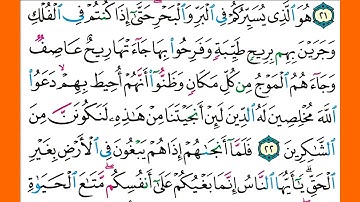 ﴿٢١﴾ هُوَ ٱلَّذِى يُسَيِّرُكُمْ فِى ٱلْبَرِّ وَٱلْبَحْرِ حَتَّىٰٓ إِذَا كُنتُمْ فِى ٱلْفُلْكِ
وَجَرَيْنَ بِهِم بِرِيحٍ طَيِّبَةٍ وَفَرِحُوا۟ بِهَا جَآءَتْهَا رِيحٌ عَاصِفٌ
وَجَآءَهُمُ ٱلْمَوْجُ مِن كُلِّ مَكَانٍ وَظَنُّوٓا۟ أَنَّهُمْ أُحِيطَ بِهِمْ دَعَوُا۟
ٱللَّهَ مُخْلِصِينَ لَهُ ٱلدِّينَ لَئِنْ أَنجَيْتَنَا مِنْ هَٰذِهِۦ لَنَكُونَنَّ مِنَ
ٱلشَّٰكِرِينَ ﴿٢٢﴾ فَلَمَّآ أَنجَىٰهُمْ إِذَا هُمْ يَبْغُونَ فِى ٱلْأَرْضِ بِغَيْرِ
ٱلْحَقِّ يَٰٓأَيُّهَا ٱلنَّاسُ إِنَّمَا بَغْيُكُمْ عَلَىٰٓ أَنفُسِكُم مَّتَٰعَ ٱلْحَيَوٰةِ